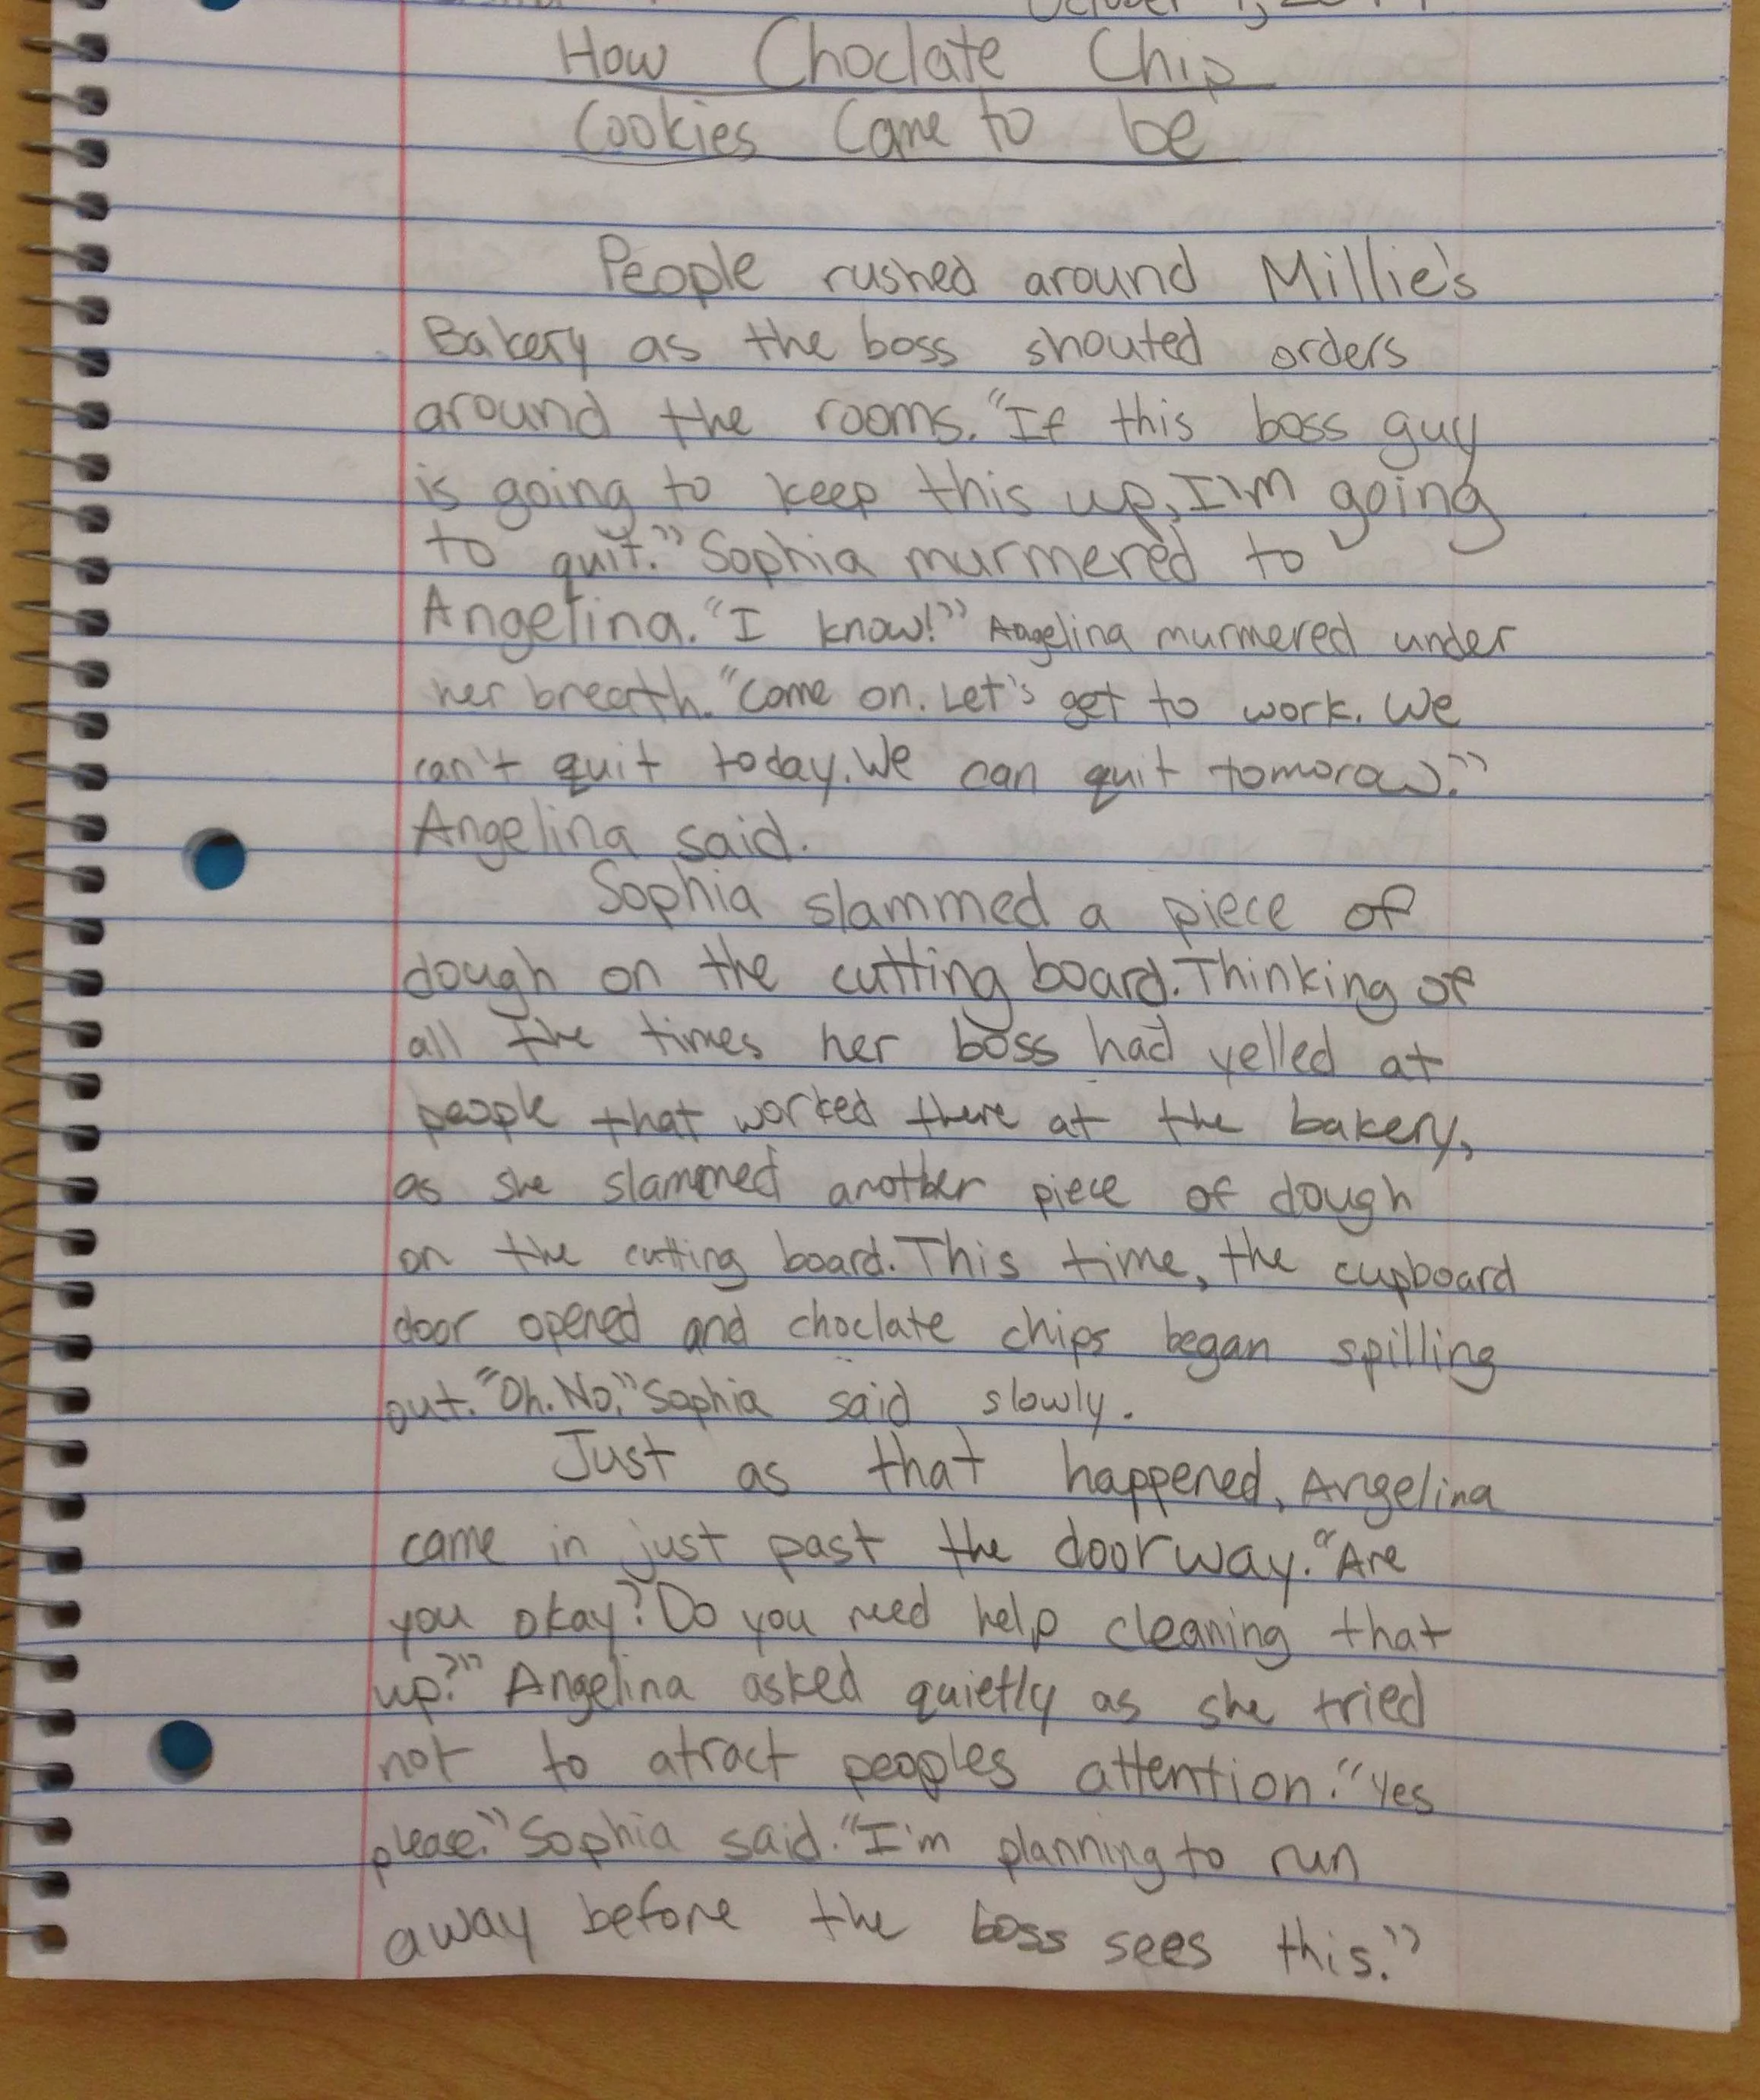 October
How Choclate Chip
Cookies Came to be
People rushed around Millie's
Bakery as the boss shouted orders
around the rooms. "If this boss guy
is going to keep this up, I'm going
to quit." Sophia murmered to
Angelina. "I know!" Angelina murmered under
her breath. "Come on. Let's get to work. We
can't quit today. We can quit tomoraw."
Angelina said.
Sophia slammed a piece of
dough on the cutting board. Thinking of
all the times her boss had yelled at
people that worked there at the bakery,
as she slammed another piece of dough
on the cutting board. This time, the cupboard
door opened and choclate chips began spilling
out. "Oh. No." Sophia said slowly.
Just as that happened, Angelina
came in just past the doorway. "Are
you okay? Do you need help cleaning that
up?" Angelina asked quietly as she tried
not to atract peoples attention. "Yes
please." Sophia said. "I'm planning to run
away before the boss sees this."